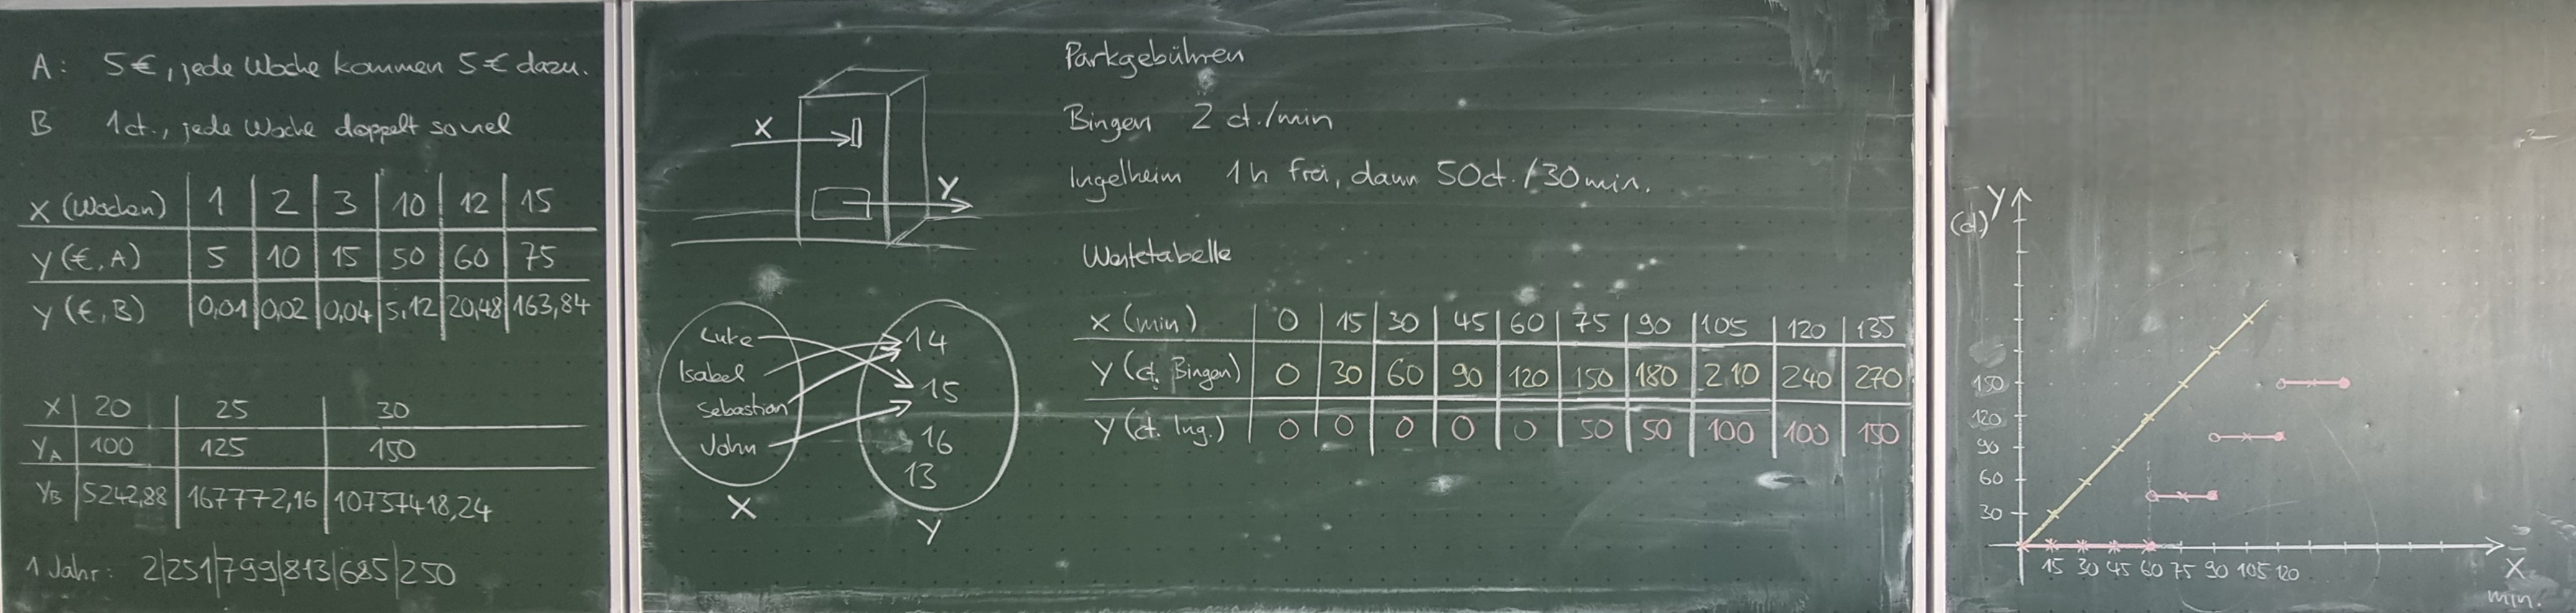 A: 5€, jede Woche kommen 5€ dazu.
B 1ct., jede Woche doppelt soviel
X (Wochen) | 1 | 2 | 3 | 10 | 12 | 15
Y (€, A) | 5 | 10 | 15 | 50 | 60 | 75
Y (€, B) | 0,01 | 0,02 | 0,04 | 5,12 | 20,48 | 163,84
X | 20 | 25 | 30
YA | 100 | 125 | 150
YB | 5242,88 | 167772,16 | 10737418,24
1 Jahr: 2|251|799|813|685|250
X
Y
Luke
Isabel
Sebastian
John
X
14
15
16
13
Y
Parkgebühren
Bingen 2 ct./min
Ingelheim 1h frei, dann 50ct./30min.
Wertetabelle
X (min) | 0 | 15 | 30 | 45 | 60 | 75 | 90 | 105 | 120 | 135
Y (ct. Bingen) | 0 | 30 | 60 | 90 | 120 | 150 | 180 | 210 | 240 | 270
Y (ct. Ing.) | 0 | 0 | 0 | 0 | 0 | 50 | 50 | 100 | 100 | 150
Y
(ct.)
150
120
90
60
30
15 30 45 60 75 90 105 120
X
min.